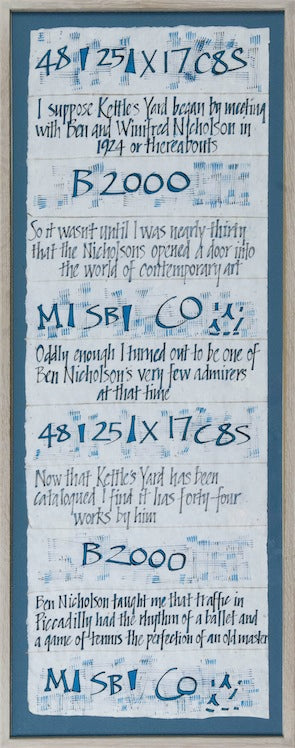 48 1 25 1 X 17 C8S
I suppose Kettle's Yard began by meeting
with Ben and Winifred Nicholson in
1924 or thereabouts
B2000
So it wasn't until I was nearly thirty
that the Nicholsons opened a door into
the world of contemporary art
M1 SB1 CO
Oddly enough I turned out to be one of
Ben Nicholson's very few admirers
at that time
48 1 25 1 X 17 C8S
Now that Kettle's Yard has been
catalogued I find it has forty-four
works by him
B2000
Ben Nicholson taught me that traffic in
Piccadilly had the rhythm of a ballet and
a game of tennis the perfection of an old master
M1 SB1 CO